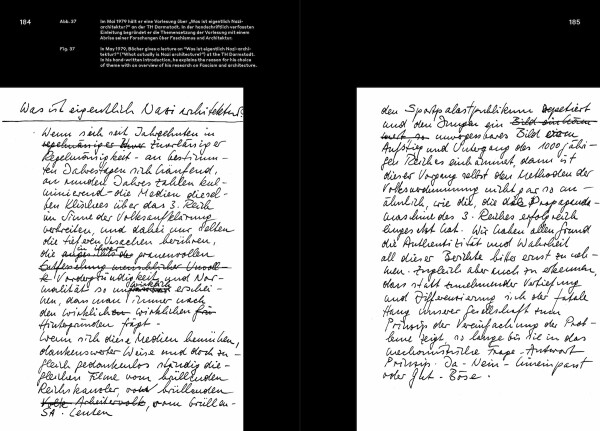 184
Abb. 37
Im Mai 1979 hält er eine Vorlesung über „Was ist eigentlich Nazi-
architektur?“ an der TH Darmstadt. In der handschriftlich verfassten
Einleitung begründet er die Themensetzung der Vorlesung mit einem
Abriss seiner Forschungen über Faschismus und Architektur.
Fig. 37
In May 1979, Bächer gives a lecture on “Was ist eigentlich Nazi-archi-
tektur?” (“What actually is Nazi architecture?”) at the TH Darmstadt.
In his hand-written introduction, he explains the reason for his choice
of theme with an overview of his research on Fascism and architecture.
Was ist eigentlich Nazi architektur?
Wenn sich seit Jahrzehnten in
zuverlässiger
Regelmässigkeit - an bestimm-
ten Jahrestagen sich häufend,
an runden Jahreszahlen kul-
minierend - die Medien diesel-
ben Klischees über das 3. Reich
im Sinne der Volksaufklärung
verbreiten, und dabei nur selten
die tieferen Ursachen berühren,
die in ihrer grauenvollen
Vordergründigkeit und Nor-
malität so erschei-
nen, dass man immer nach
den wirklichen
Hintergründen frägt -
Wenn sich diese Medien bemühen,
dankenswerter Weise und doch zu-
gleich gedankenlos ständig die-
gleichen Filme vom brüllenden
Reichskanzler, brüllenden
vom brüllen-
SA - Leuten
185
den Sportpalastpublikum repetiert
und den Jungen ein
unvergessbares Bild vom
Aufstieg und Untergang des 1000 jähri-
gen Reiches einhämmert, dann ist
dieser Vorgang selbst den Methoden der
Volksverdummung nicht gar so un-
ähnlich, wie die, die Propaganda-
maschine des 3. Reiches erfolgreich
eingesetzt hat. Wir haben allen Grund
die Authentizität und Wahrheit
all dieser Berichte bitter ernst zu neh-
men. Zugleich aber auch zu erkennen,
dass statt zunehmender Vertiefung
und Differenzierung sich der fatale
Hang unserer Gesellschaft zum
Prinzip der Vereinfachung der Prob-
leme zeigt, so lange bis sie in das
mechanistische Frage - Antwort
Prinzip: Ja - Nein - hineinpasst
oder Gut - Böse.